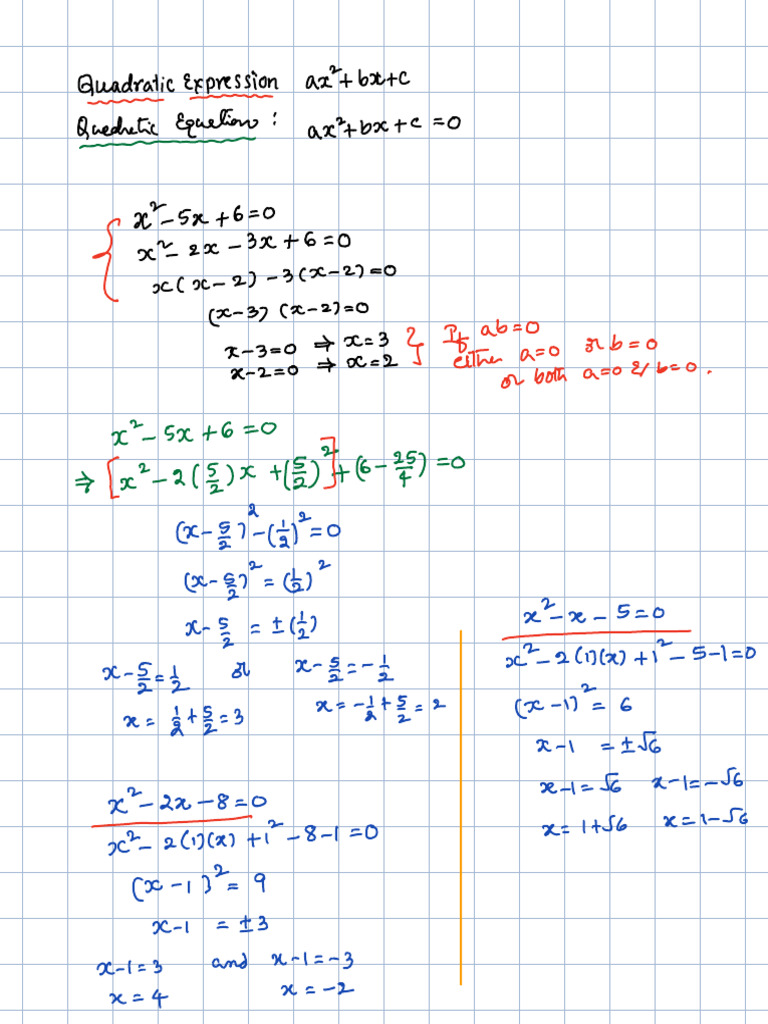 Quadratic Expression ax²+bx+c
Quedretic Equetion : ax²+bx+c=0
x²-5x+6=0
x²-2x-3x+6=0
x(x-2)-3(x-2)=0
(x-3)(x-2)=0
x-3=0 ⇒ x=3
x-2=0 ⇒ x=2
If ab=0
either a=0 or b=0
or both a=0 & b=0.
x²-5x+6=0
⇒ [x²-2(5/2)x+(5/2)²]+(6-25/4)=0
(x-5/2)²-(1/2)²=0
(x-5/2)²=(1/2)²
x-5/2=±(1/2)
x-5/2=1/2 or x-5/2=-1/2
x=1/2+5/2=3 x=-1/2+5/2=2
x²-2x-8=0
x²-2(1)(x)+1²-8-1=0
(x-1)²=9
x-1=±3
x-1=3 and x-1=-3
x=4 x=-2
x²-x-5=0
x²-2(1)(x)+1²-5-1=0
(x-1)²=6
x-1=±√6
x-1=√6 x-1=-√6
x=1+√6 x=1-√6